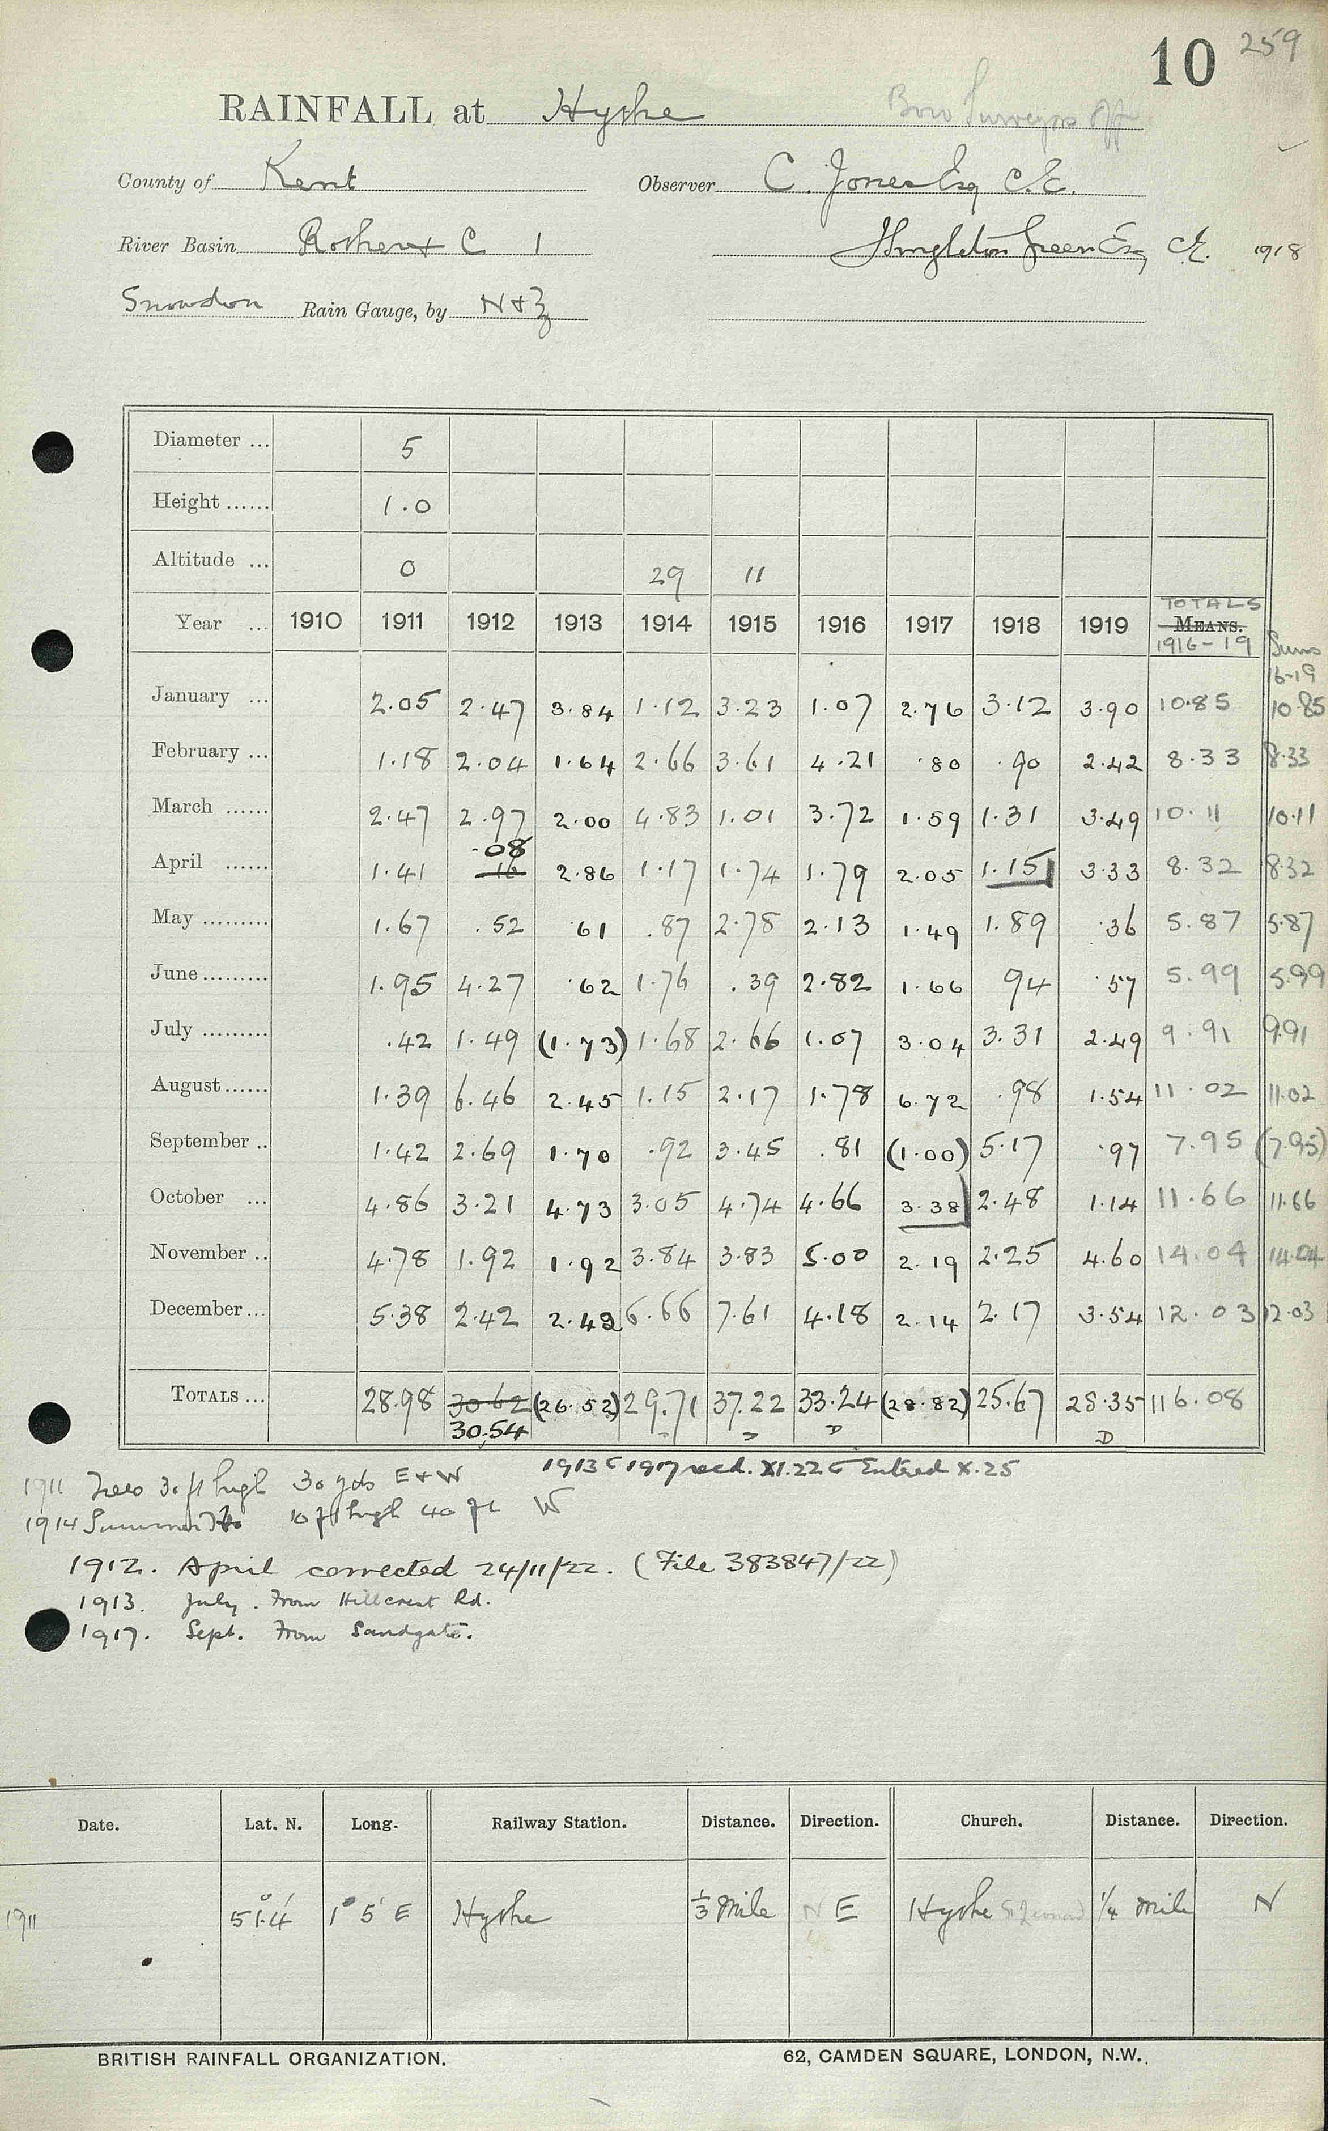 10 259
RAINFALL at Hythe Boro Surveyors Off
County of Kent Observer C. Jones Esq C.E.
River Basin Rother + C 1 Singleton Green Esq C.E. 1918
Snowdon Rain Gauge, by N & Z
Diameter ... 5
Height ...... 1.0
Altitude ... 0 29 11
TOTALS
Year ... 1910 1911 1912 1913 1914 1915 1916 1917 1918 1919 MEANS.
1916-19 Sums
16-19
January ... 2.05 2.47 3.84 1.12 3.23 1.07 2.76 3.12 3.90 10.85 10.85
February ... 1.18 2.04 1.64 2.66 3.61 4.21 .80 .90 2.42 8.33 8.33
March ...... 2.47 2.97 2.00 4.83 1.01 3.72 1.59 1.31 3.49 10.11 10.11
.08
April ...... 1.41 .16 2.86 1.17 1.74 1.79 2.05 1.15 3.33 8.32 8.32
May ......... 1.67 .52 .61 .87 2.78 2.13 1.49 1.89 .36 5.87 5.87
June ......... 1.95 4.27 .62 1.76 .39 2.82 1.66 94 .57 5.99 5.99
July ......... .42 1.49 (1.73) 1.68 2.66 1.07 3.04 3.31 2.49 9.91 9.91
August ...... 1.39 6.46 2.45 1.15 2.17 1.78 6.72 .98 1.54 11.02 11.02
September .. 1.42 2.69 1.70 .92 3.45 .81 (1.00) 5.17 .97 7.95 (7.95)
October ... 4.86 3.21 4.73 3.05 4.74 4.66 3.38 2.48 1.14 11.66 11.66
November .. 4.78 1.92 1.92 3.84 3.83 5.00 2.19 2.25 4.60 14.04 14.04
December ... 5.38 2.42 2.42 6.66 7.61 4.18 2.14 2.17 3.54 12.03 12.03
TOTALS ... 28.98 30.62 (26.52) 29.71 37.22 33.24 (28.82) 25.67 28.35 116.08
30.54 D D
1913 & 1917 recd. XI.22 & Entered X.25
1911 Trees 30 ft high 30 yds E & W
1914 Summer Ho 10 ft high 40 ft W
1912. April corrected 24/11/22. (File 383847/22)
1913. July. From Hillcrest Rd.
1917. Sept. From Sandgate.
Date. Lat. N. Long. Railway Station. Distance. Direction. Church. Distance. Direction.
1911 51° 4' 1° 5' E Hythe 1/3 Mile N E Hythe St Leonard 1/4 mile N
BRITISH RAINFALL ORGANIZATION. 62, CAMDEN SQUARE, LONDON, N.W.